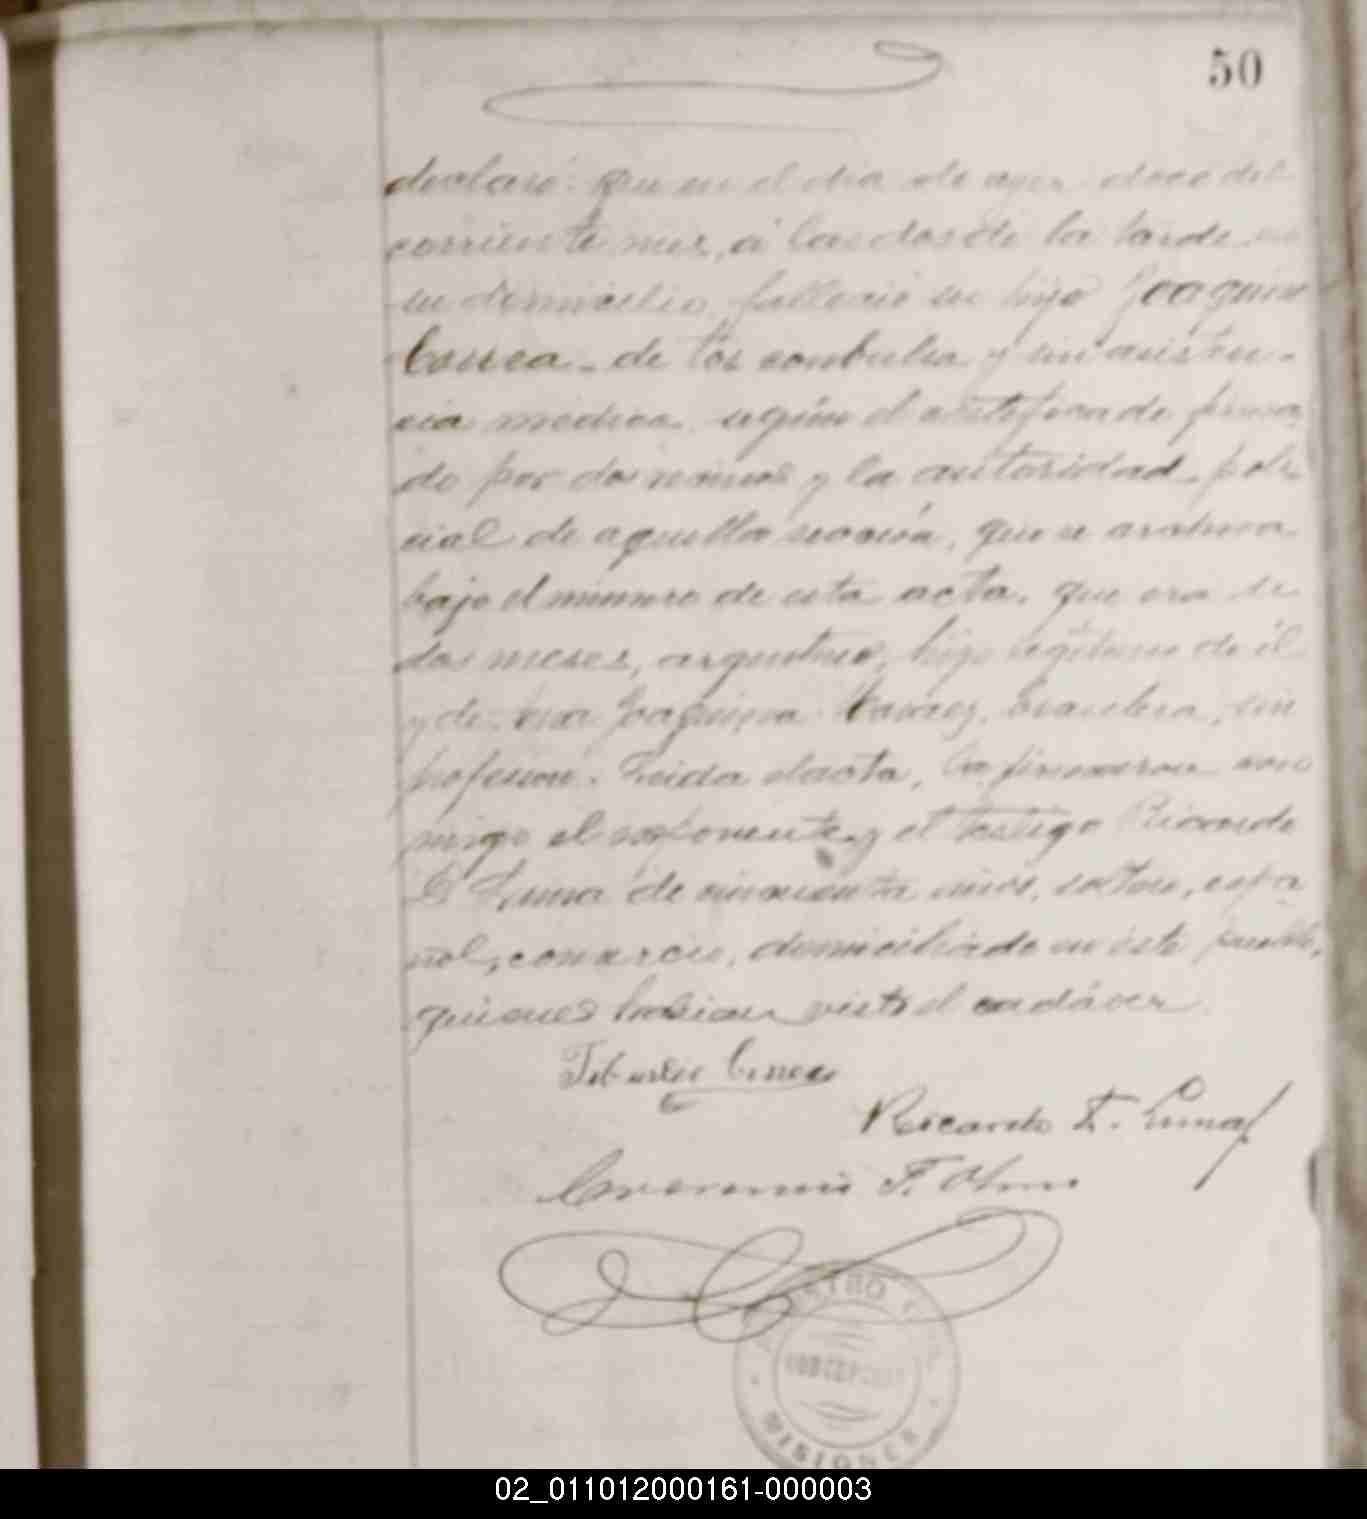 50
declaró: Que en el dia de ayer doce del
corriente mes, á las dos de la tarde en
su domicilio, falleció su hijo Joaquin
Correa de tos convulsa y sin asisten-
cia médica, según el certificado firma
do por dos vecinos y la autoridad poli
cial de aquella sección, que se archiva
bajo el número de esta acta, que era de
dos meses, argentino, hijo legítimo de él
y de Joaquina brasilera, sin
profesion. Leida el acta, la firmaron con
migo el exponente y el testigo Ricardo
F. Luna de cincuenta años, soltero, espa
ñol, comercio, domiciliado en éste pueblo,
quienes habian visto el cadáver
Tiburcio Correa
Ricardo F. Luna
F.
REGISTRO CIVIL
CONCEPCION
MISIONES
02_011012000161-000003